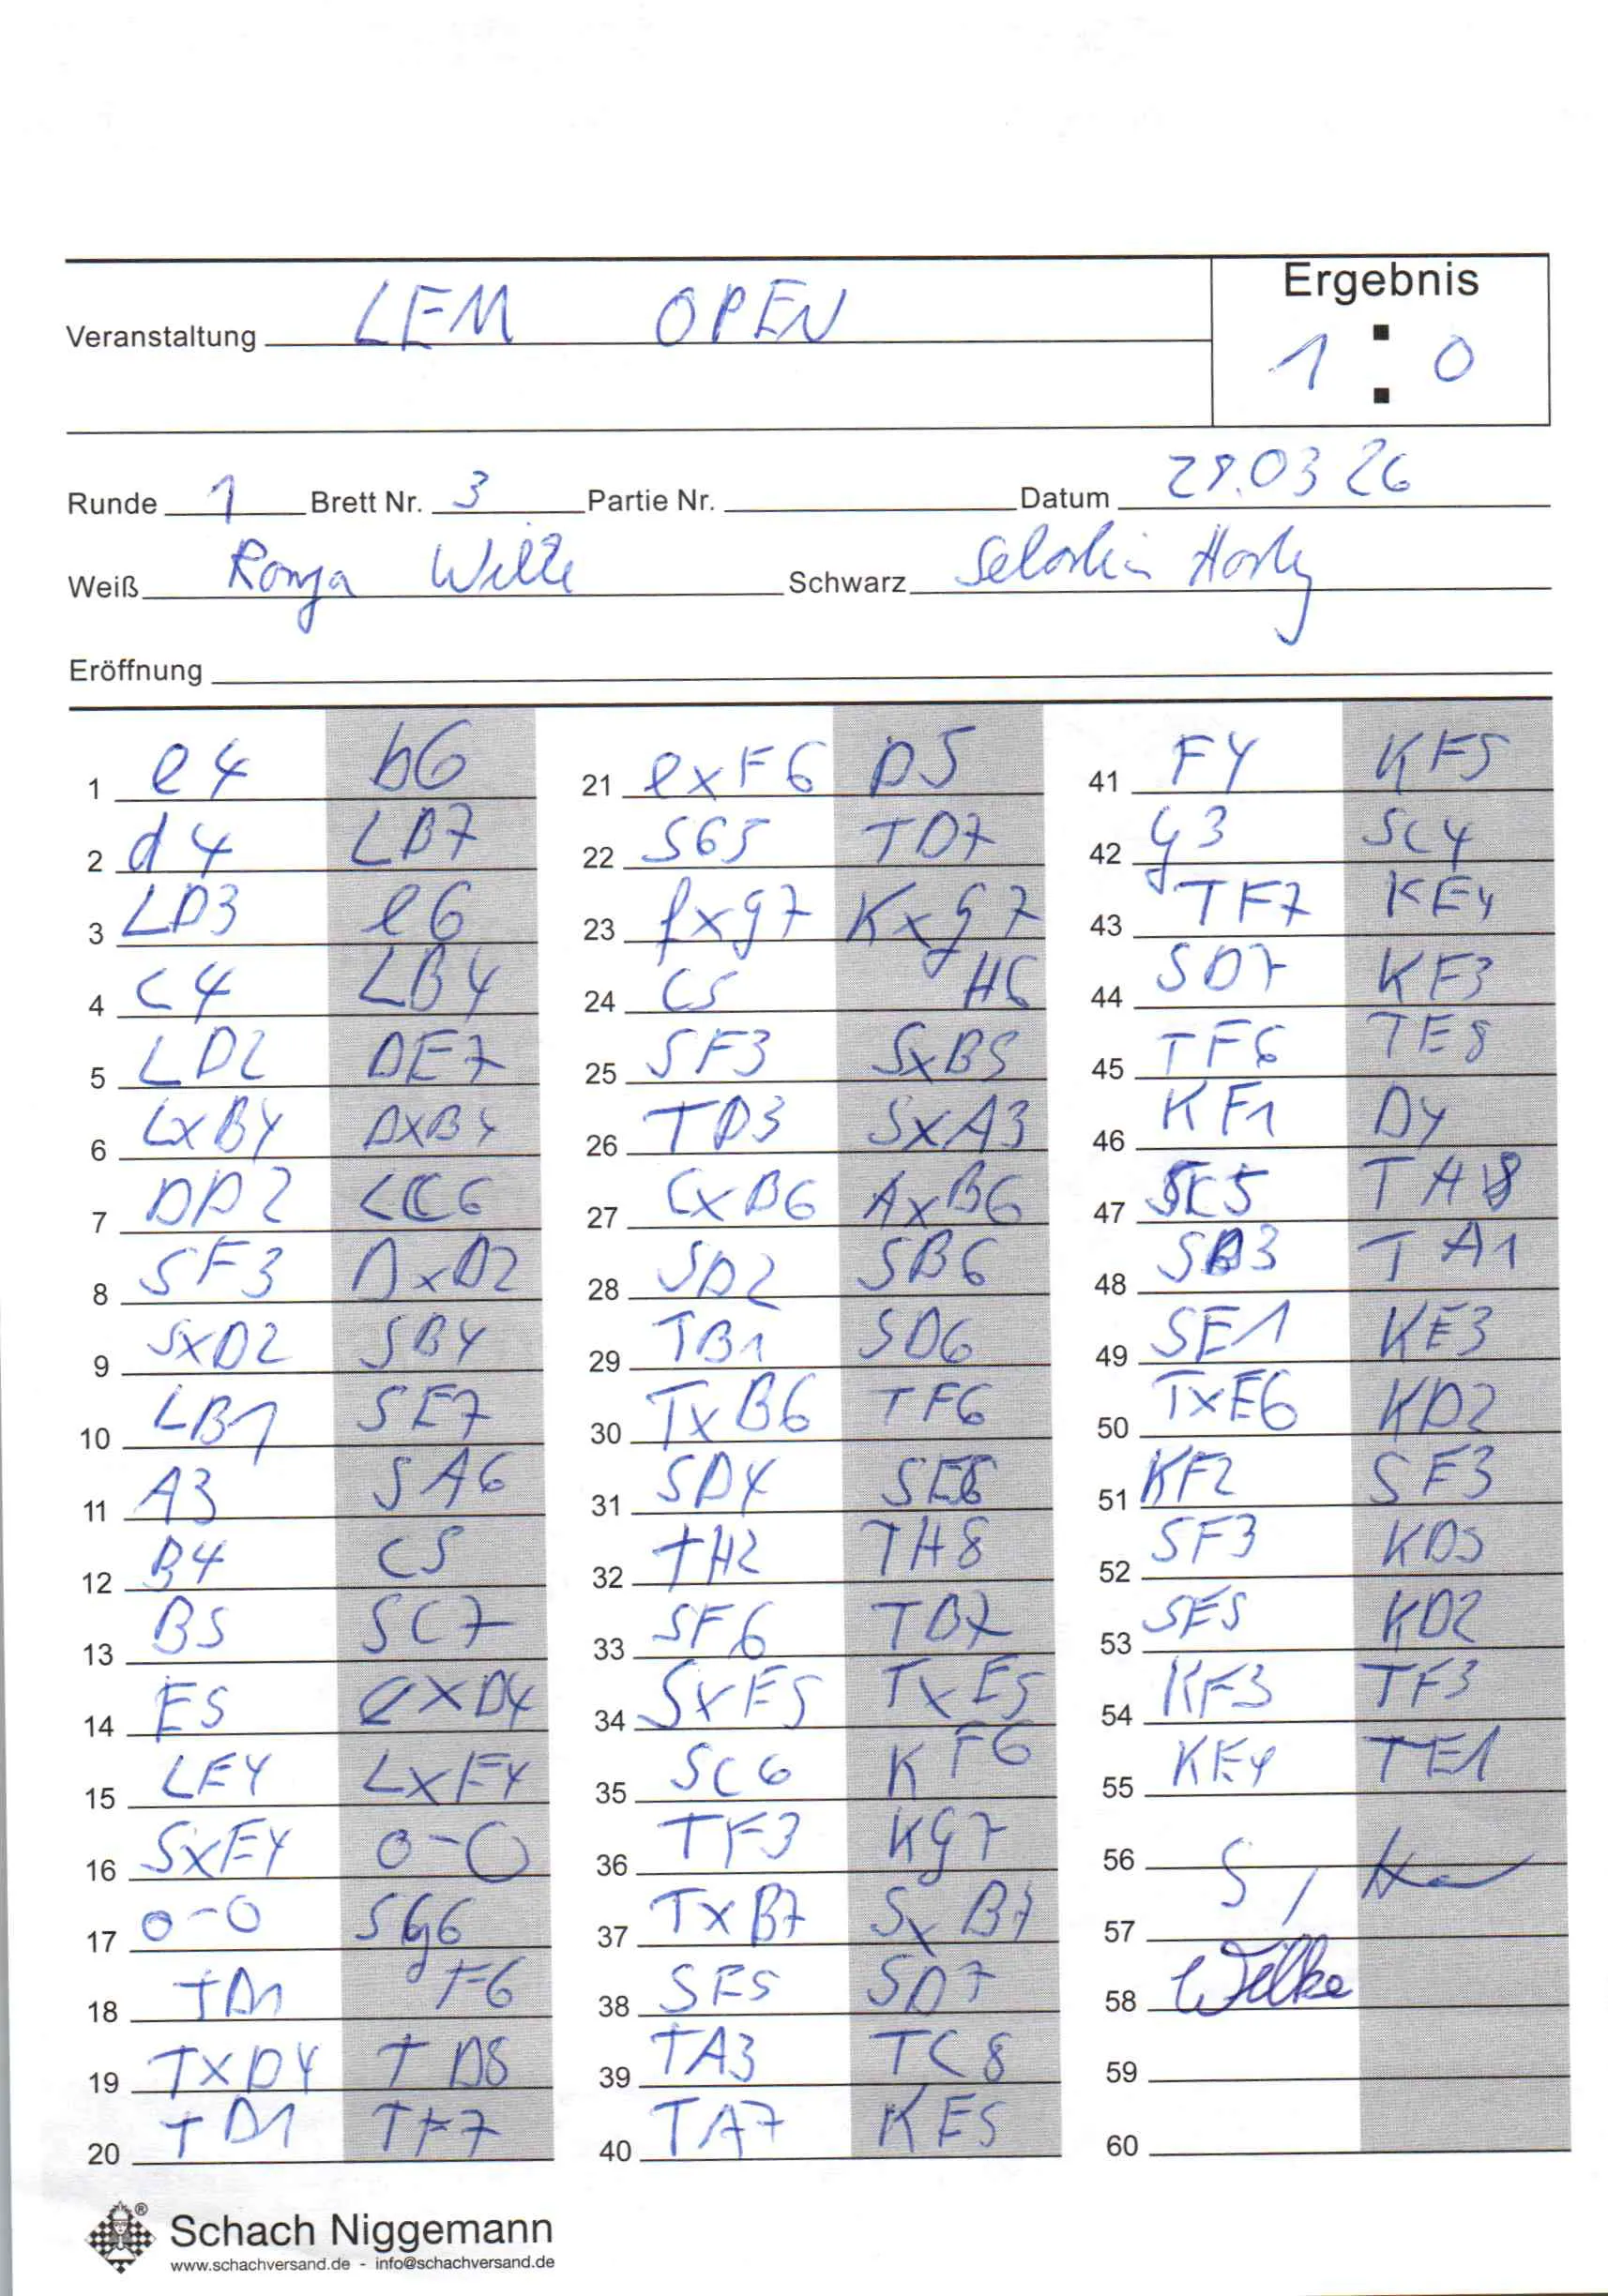 Ergebnis
Veranstaltung LEM OPEN
1 : 0
Runde 1 Brett Nr. 3 Partie Nr. Datum 28.03 26
Weiß Ronja Wilke Schwarz
Eröffnung
1 e4 b6
2 d4 LB7
3 LD3 e6
4 c4 LB4
5 LD2 DE7
6 LxB4 DxB4
7 DD2 LC6
8 SF3 DxD2
9 SxD2 SB4
10 LB1 SE7
11 A3 SA6
12 B4 C5
13 B5 SC7
14 E5 CxD4
15 LE4 LxE4
16 SxE4 0-0
17 0-0 Sg6
18 TD1 F6
19 TXD4 TD8
20 TD1 TF7
21 exF6 D5
22 SG5 TD7
23 fxg7 Kxg7
24 C5 H6
25 SF3 SxB5
26 TD3 SxA3
27 CxB6 AxB6
28 SD2 SB6
29 TB1 SD6
30 TxB6 TF6
31 SD4 SE8
32 TH2 TH8
33 SF6 TB7
34 SxF5 TxE5
35 SC6 KF6
36 TF3 Kg7
37 TxB7 SxB7
38 SE5 SD7
39 TA3 TC8
40 TA7 KE5
41 F4 KF5
42 g3 SC4
43 TF7 KE4
44 SD7 KF3
45 TF6 TE8
46 KF1 D4
47 SC5 TA8
48 SB3 TA1
49 SE1 KE3
50 TxE6 KD2
51 KF2 SF3
52 SF3 KD5
53 SE5 KD2
54 KF3 TF3
55 KE4 TE1
56
57
58 Wilke
59
60
Schach Niggemann
www.schachversand.de - info@schachversand.de